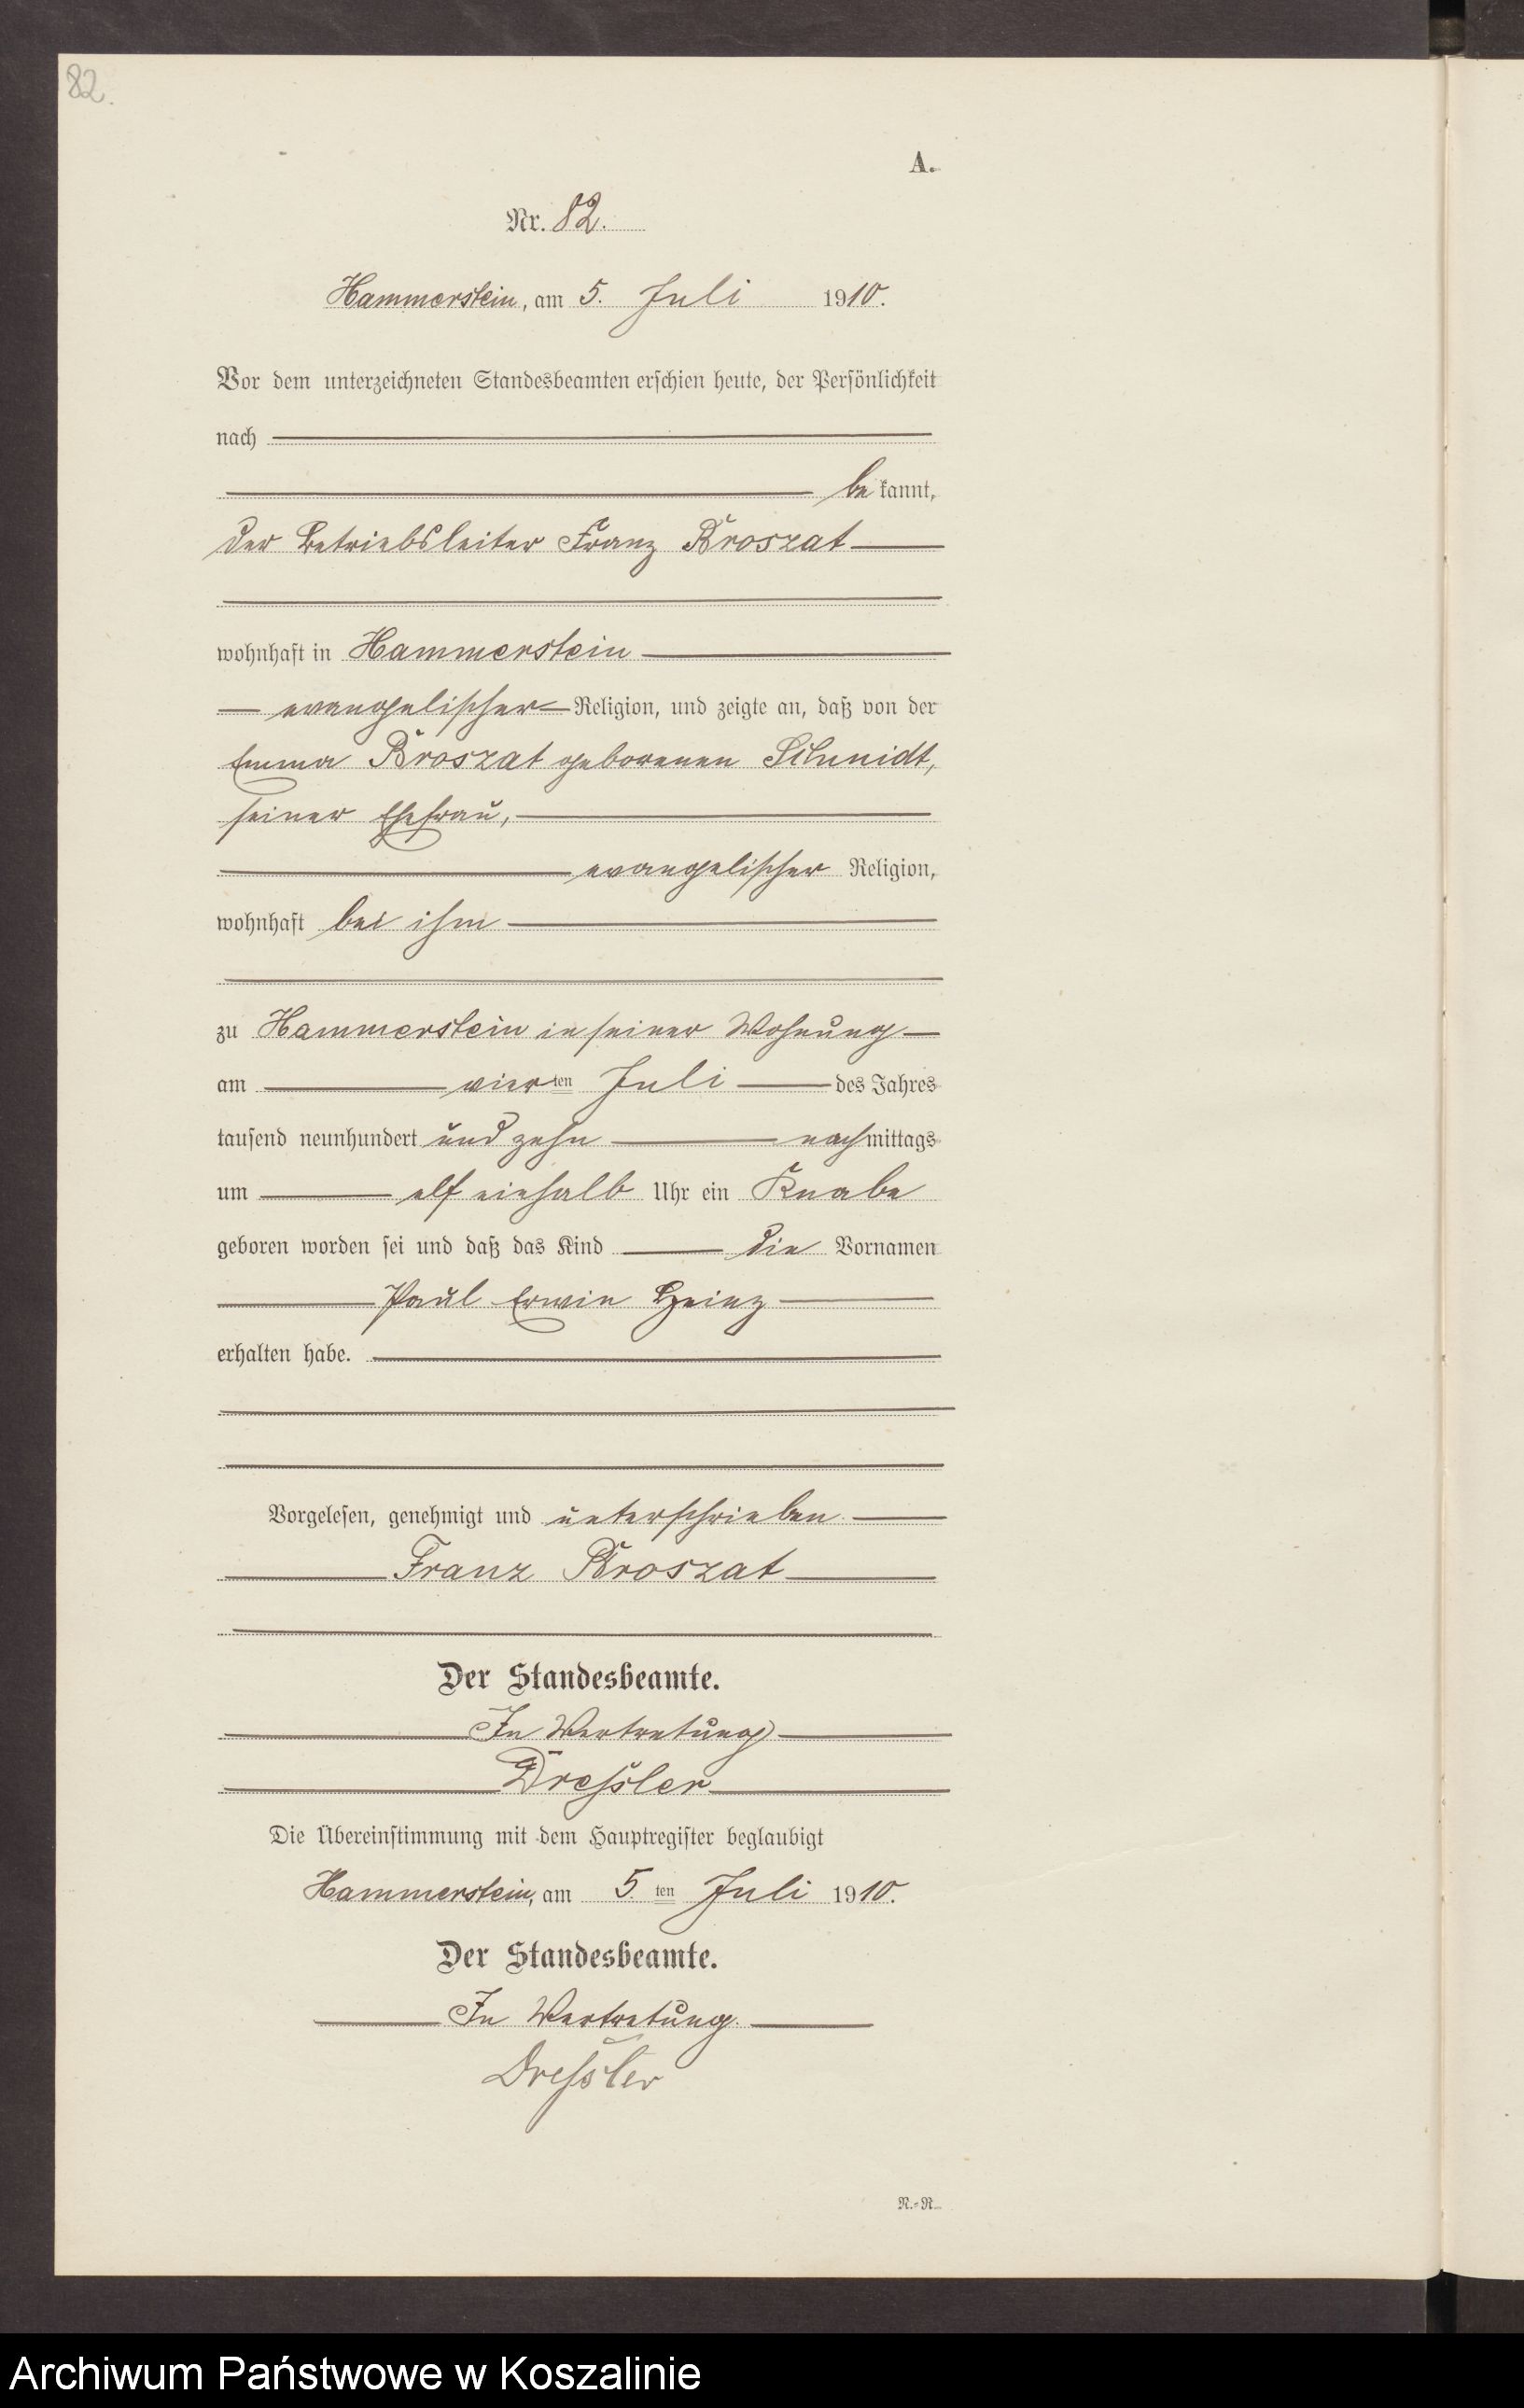 82.
A.
Nr. 82.
Hammerstein, am 5. Juli 1910.
Vor dem unterzeichneten Standesbeamten erschien heute, der Persönlichkeit
nach
bekannt,
der Betriebsleiter Franz Broszat
wohnhaft in Hammerstein
evangelischer Religion, und zeigte an, daß von der
Emma Broszat geborenen Schmidt,
seiner Ehefrau,
evangelischer Religion,
wohnhaft bei ihm
zu Hammerstein in seiner Wohnung
am vierten Juli des Jahres
tausend neunhundert und zehn nachmittags
um elf einhalb Uhr ein Knabe
geboren worden sei und daß das Kind die Vornamen
Paul Erwin Heinz
erhalten habe.
Vorgelesen, genehmigt und unterschrieben
Franz Broszat
Der Standesbeamte.
In Vertretung
Dressler
Die Übereinstimmung mit dem Hauptregister beglaubigt
Hammerstein, am 5ten Juli 1910.
Der Standesbeamte.
In Vertretung
Dressler
R.-R.
Archiwum Państwowe w Koszalinie